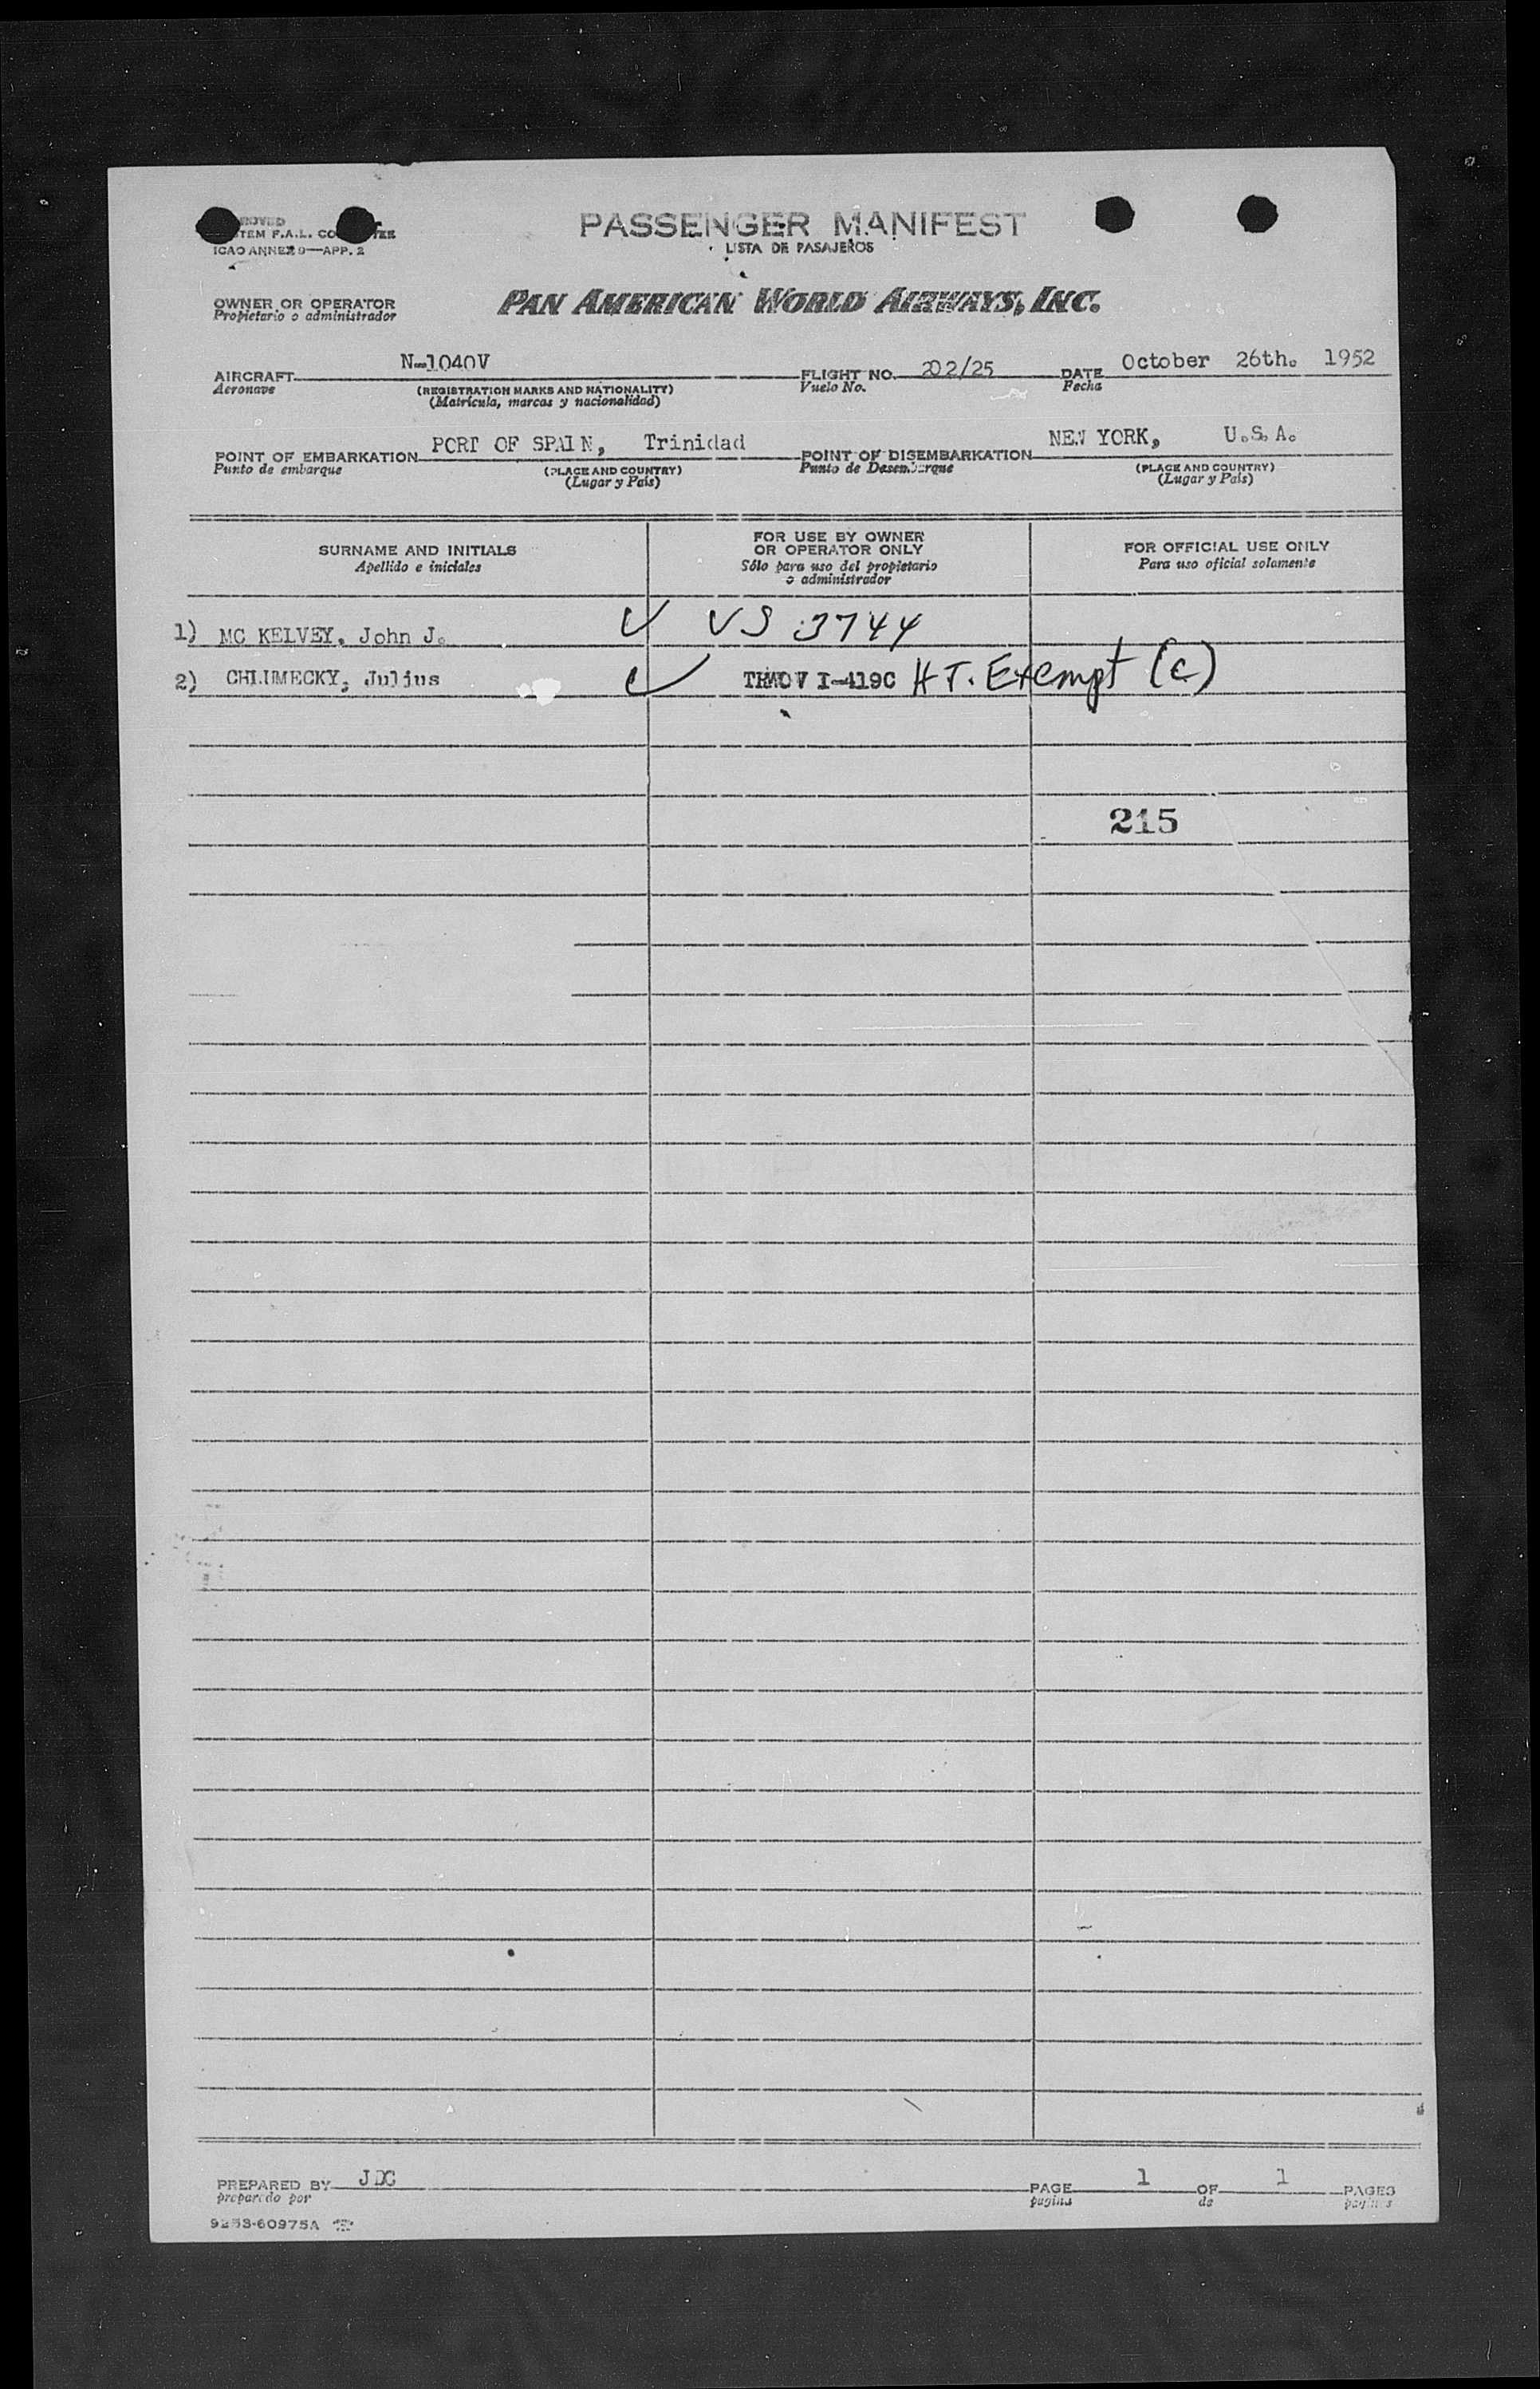 PASSENGER MANIFEST
LISTA DE PASAJEROS
ICAO ANNEX 9—APP. 2
OWNER OR OPERATOR
Propietario o administrador
PAN AMERICAN WORLD AIRWAYS, INC.
AIRCRAFT N-1040V FLIGHT NO. 202/25 DATE October 26th. 1952
Aeronave (REGISTRATION MARKS AND NATIONALITY) Vuelo No. Fecha
(Matrícula, marcas y nacionalidad)
POINT OF EMBARKATION PORT OF SPAIN, Trinidad POINT OF DISEMBARKATION NEW YORK, U.S.A.
Punto de embarque (PLACE AND COUNTRY) Punto de Desembarque (PLACE AND COUNTRY)
(Lugar y País) (Lugar y País)
SURNAME AND INITIALS
Apellido e iniciales
FOR USE BY OWNER
OR OPERATOR ONLY
Sólo para uso del propietario
o administrador
FOR OFFICIAL USE ONLY
Para uso oficial solamente
1) MC KELVEY, John J. VS 3744
2) CHLUMECKY, Julius I-419C HT. Exempt (c)
215
PREPARED BY JDC PAGE 1 OF 1 PAGES
preparado por pagina de paginas
9253-60975A